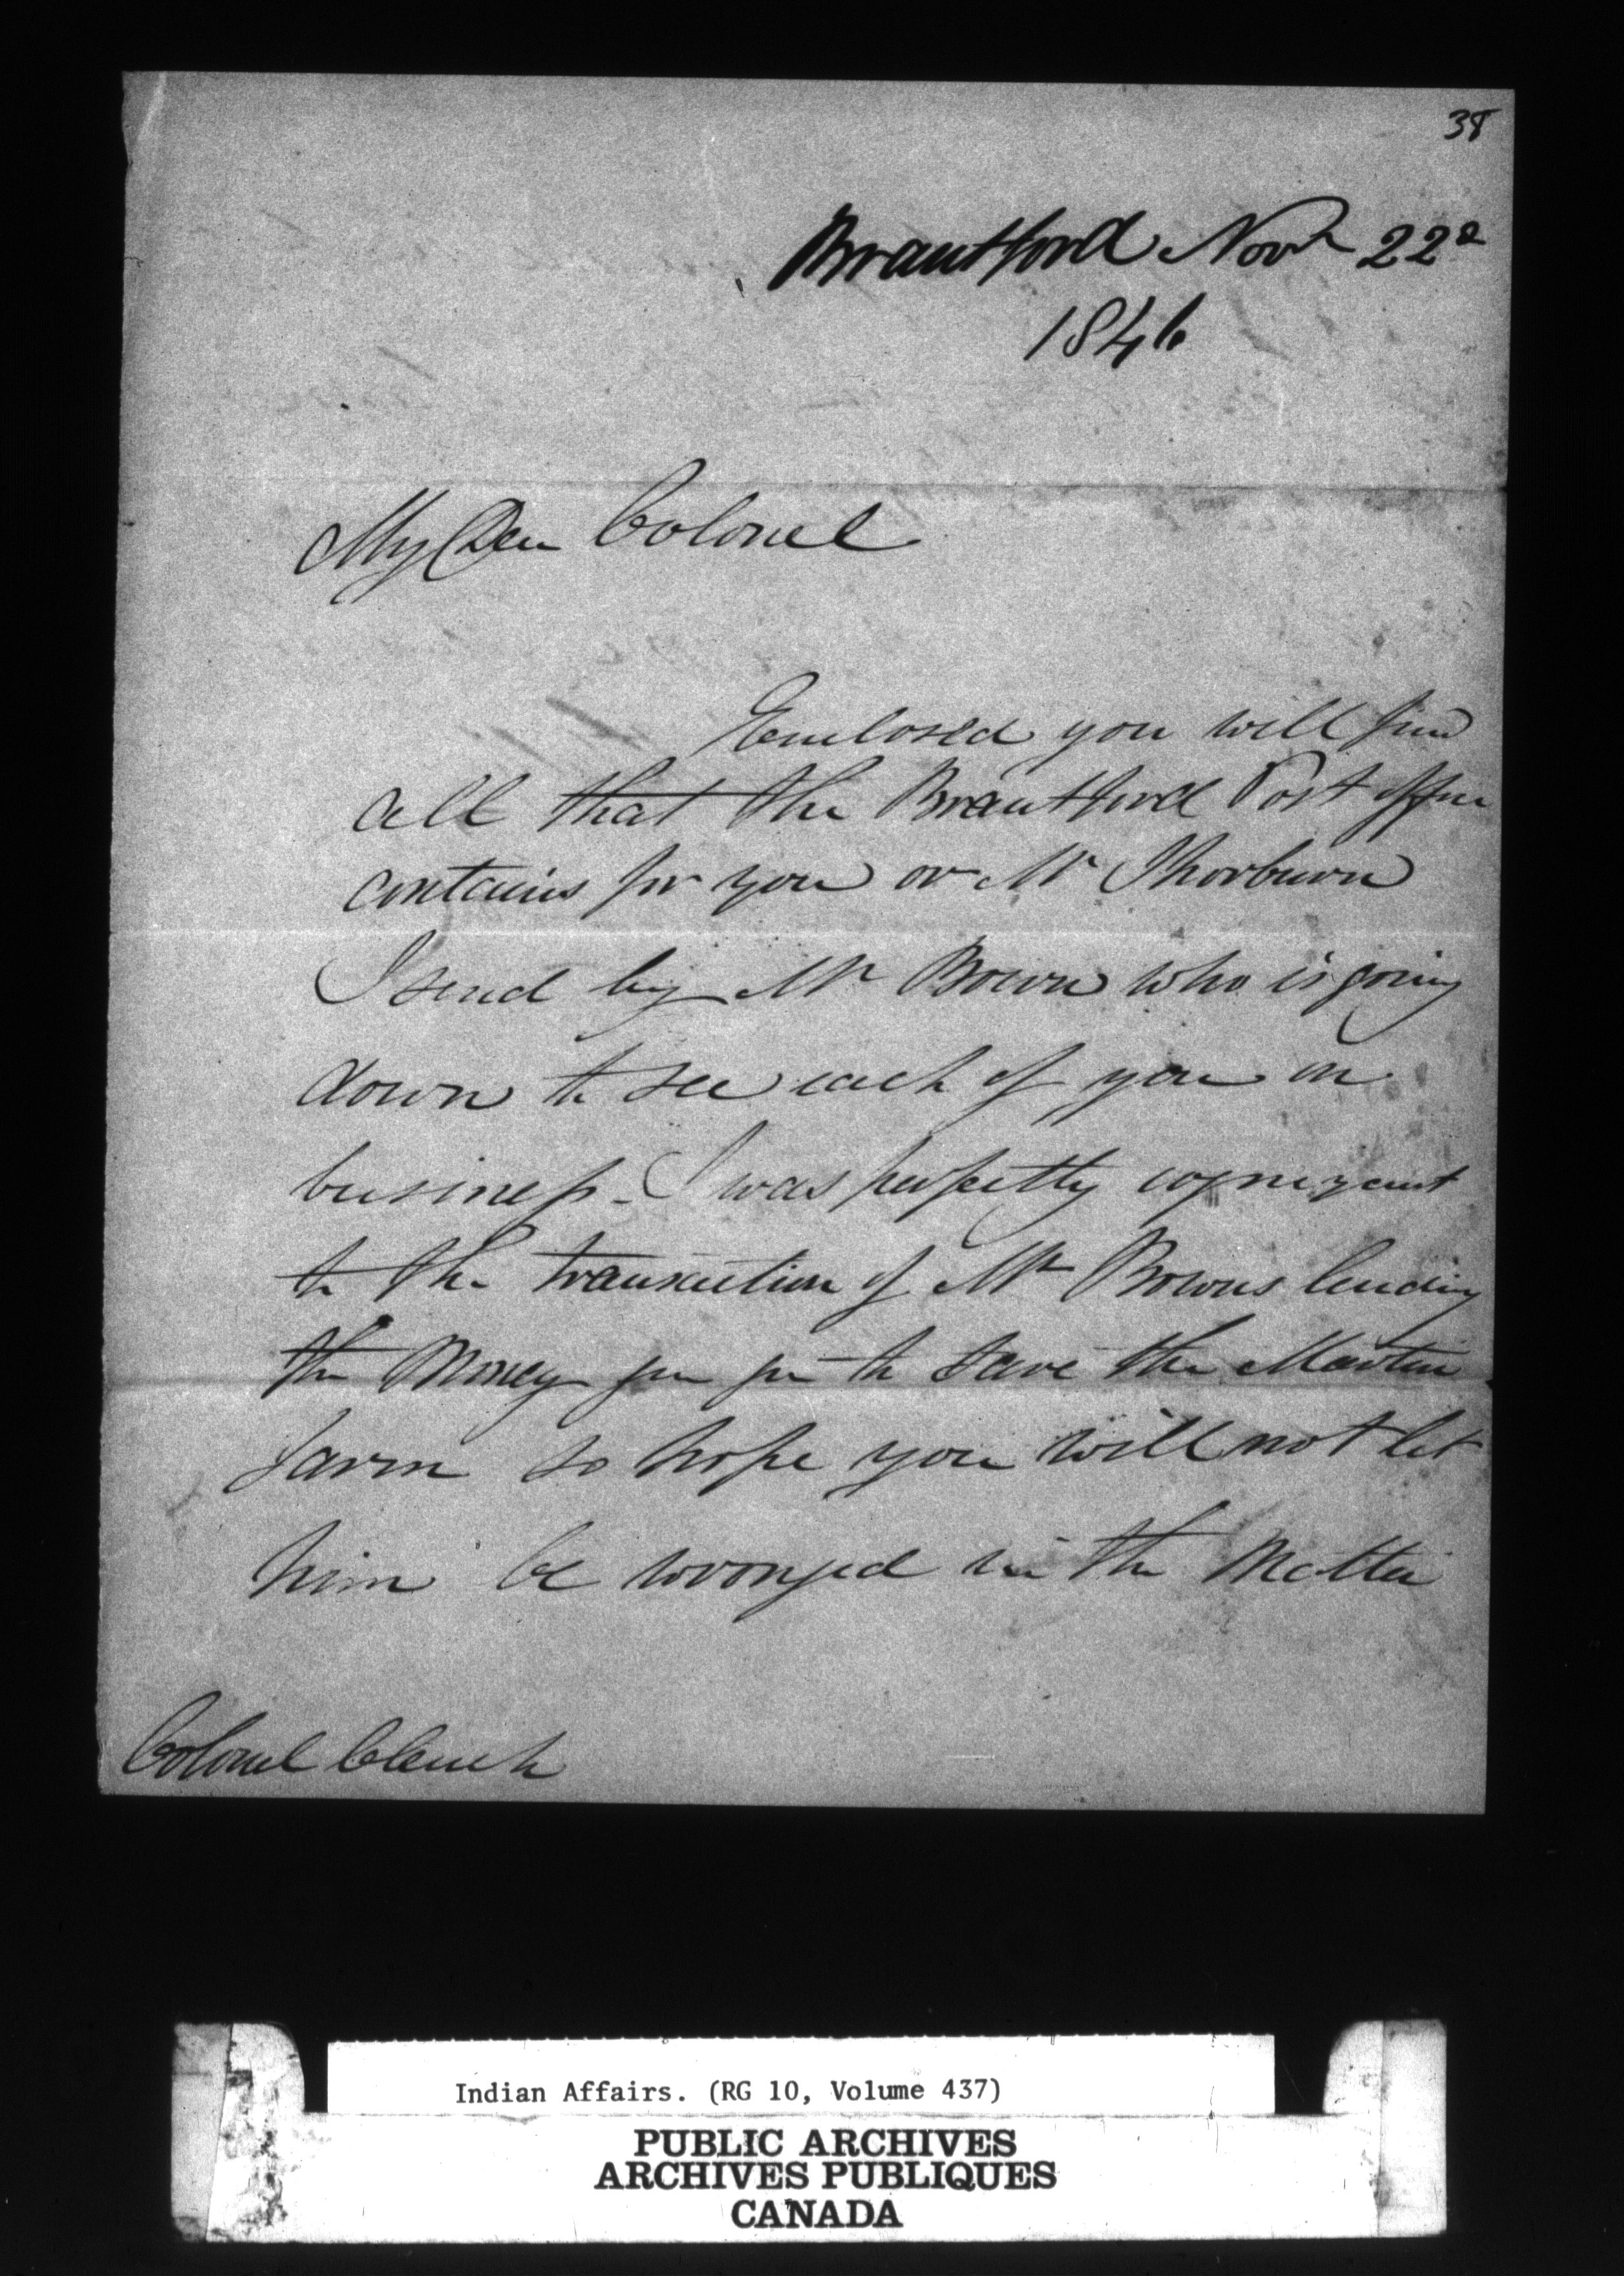 38
Brantford Novr 22d
1846
My Dear Colonel
Enclosed you will find
all that the Brantford Post office
contains for you or Mr Thorburn
I send by Mr Brown who is going
down to see each of you on
business - I was perfectly cognizant
to the transaction of Mr Browns lending
the Money to save the Martin
farm so hope you will not let
him be wronged in the Matter
Colonel Clench
Indian Affairs. (RG 10, Volume 437)
PUBLIC ARCHIVES
ARCHIVES PUBLIQUES
CANADA